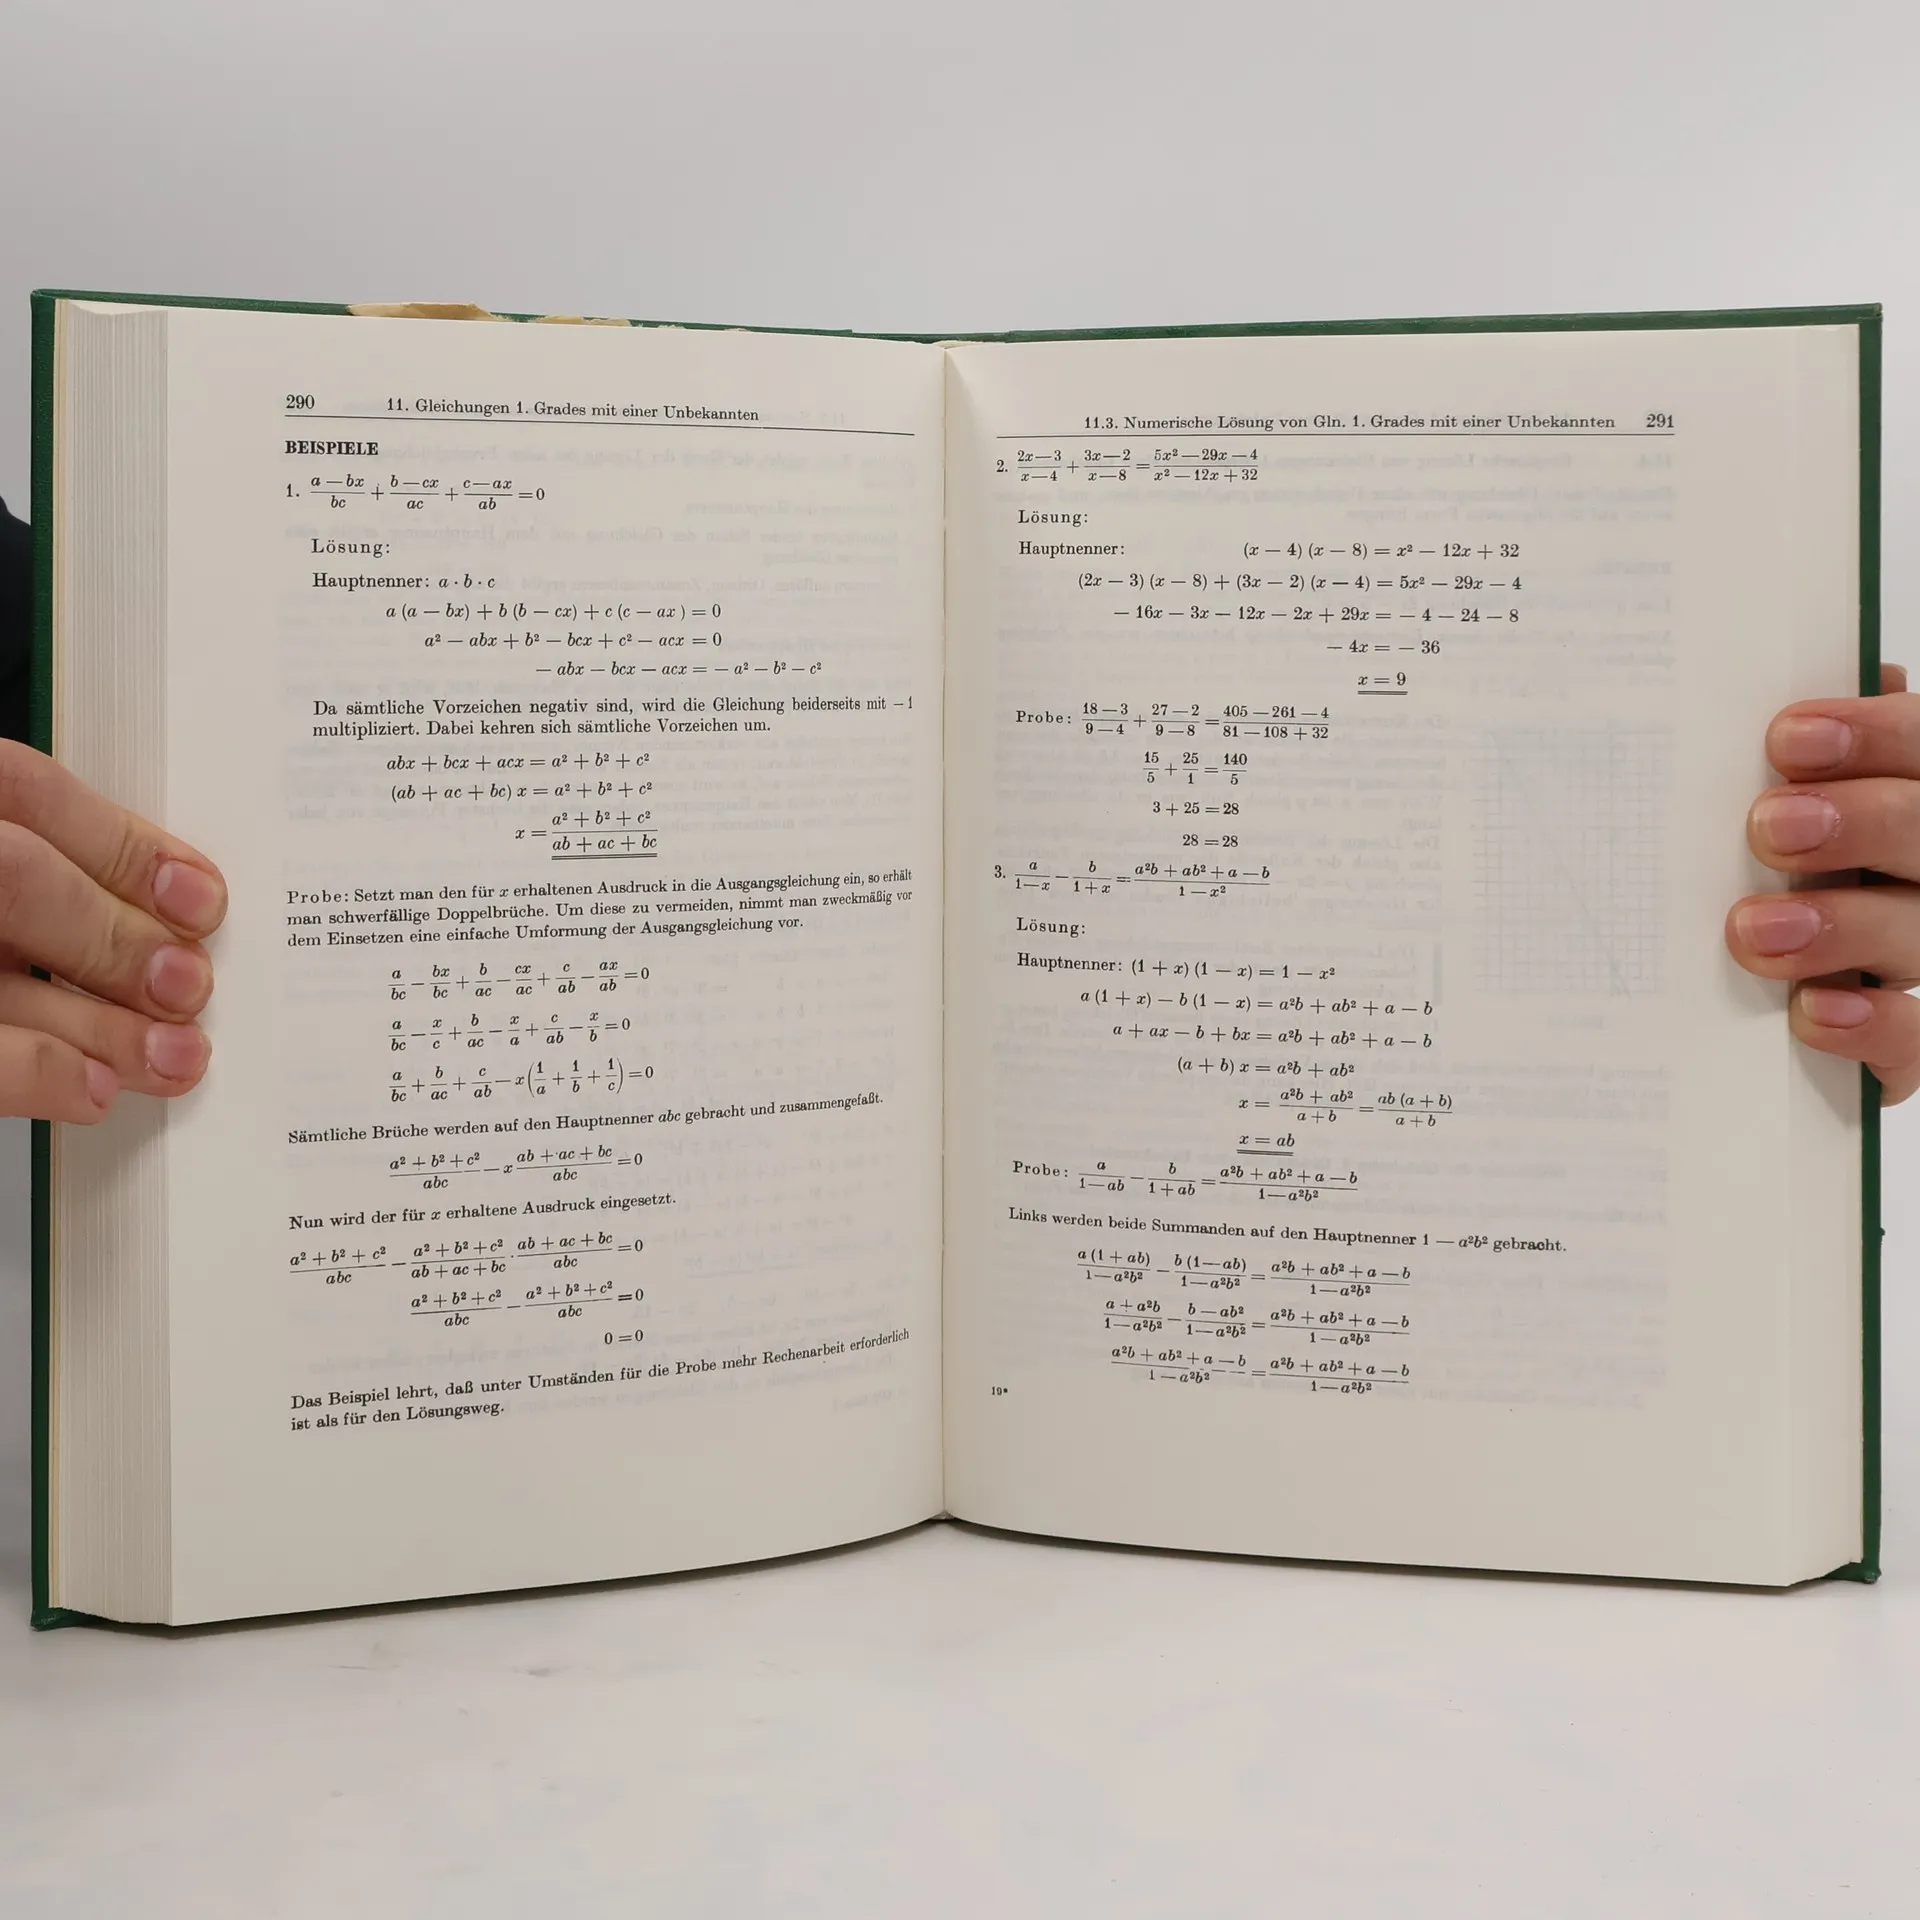 290 11. Gleichungen 1. Grades mit einer Unbekannten
BEISPIELE
1. (a — bx)/(bc) + (b — cx)/(ac) + (c — ax)/(ab) = 0
Lösung:
Hauptnenner: a · b · c
a (a — bx) + b (b — cx) + c (c — ax ) = 0
a² — abx + b² — bcx + c² — acx = 0
— abx — bcx — acx = — a² — b² — c²
Da sämtliche Vorzeichen negativ sind, wird die Gleichung beiderseits mit —1
multipliziert. Dabei kehren sich sämtliche Vorzeichen um.
abx + bcx + acx = a² + b² + c²
(ab + ac + bc) x = a² + b² + c²
x = (a² + b² + c²)/(ab + ac + bc)
Probe: Setzt man den für x erhaltenen Ausdruck in die Ausgangsgleichung ein, so erhält
man schwerfällige Doppelbrüche. Um diese zu vermeiden, nimmt man zweckmäßig vor
dem Einsetzen eine einfache Umformung der Ausgangsgleichung vor.
a/(bc) — bx/(bc) + b/(ac) — cx/(ac) + c/(ab) — ax/(ab) = 0
a/(bc) — x/c + b/(ac) — x/a + c/(ab) — x/b = 0
a/(bc) + b/(ac) + c/(ab) — x(1/a + 1/b + 1/c) = 0
Sämtliche Brüche werden auf den Hauptnenner abc gebracht und zusammengefaßt.
(a² + b² + c²)/(abc) — x (ab + ac + bc)/(abc) = 0
Nun wird der für x erhaltene Ausdruck eingesetzt.
(a² + b² + c²)/(abc) — (a² + b² + c²)/(ab + ac + bc) · (ab + ac + bc)/(abc) = 0
(a² + b² + c²)/(abc) — (a² + b² + c²)/(abc) = 0
0 = 0
Das Beispiel lehrt, daß unter Umständen für die Probe mehr Rechenarbeit erforderlich
ist als für den Lösungsweg.
11.3. Numerische Lösung von Gln. 1. Grades mit einer Unbekannten 291
2. (2x — 3)/(x — 4) + (3x — 2)/(x — 8) = (5x² — 29x — 4)/(x² — 12x + 32)
Lösung:
Hauptnenner: (x — 4) (x — 8) = x² — 12x + 32
(2x — 3) (x — 8) + (3x — 2) (x — 4) = 5x² — 29x — 4
— 16x — 3x — 12x — 2x + 29x = — 4 — 24 — 8
— 4x = — 36
x = 9
Probe: (18 — 3)/(9 — 4) + (27 — 2)/(9 — 8) = (405 — 261 — 4)/(81 — 108 + 32)
15/5 + 25/1 = 140/5
3 + 25 = 28
28 = 28
3. a/(1 — x) — b/(1 + x) = (a²b + ab² + a — b)/(1 — x²)
Lösung:
Hauptnenner: (1 + x) (1 — x) = 1 — x²
a (1 + x) — b (1 — x) = a²b + ab² + a — b
a + ax — b + bx = a²b + ab² + a — b
(a + b) x = a²b + ab²
x = (a²b + ab²)/(a + b) = ab (a + b)/(a + b)
x = ab
Probe: a/(1 — ab) — b/(1 + ab) = (a²b + ab² + a — b)/(1 — a²b²)
Links werden beide Summanden auf den Hauptnenner 1 — a²b² gebracht.
a (1 + ab)/(1 — a²b²) — b (1 — ab)/(1 — a²b²) = (a²b + ab² + a — b)/(1 — a²b²)
(a + a²b)/(1 — a²b²) — (b — ab²)/(1 — a²b²) = (a²b + ab² + a — b)/(1 — a²b²)
(a²b + ab² + a — b)/(1 — a²b²) = (a²b + ab² + a — b)/(1 — a²b²)
19*